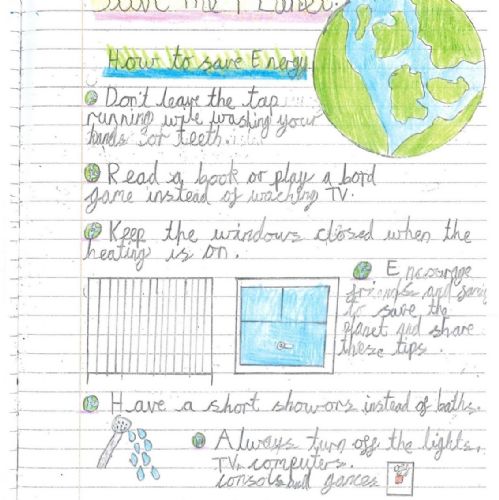 Save the Planet.
How to save Energy
Don't leave the tap
running wile washing your
hands or teeth.
Read a book or play a bord
game instead of waching TV.
Keep the windows closed when the
heating is on.
Encourage
friends and
to save the
planet and share
these tips.
Have a short showors instead of baths.
Always turn off the lights,
TV, computers,
consols and